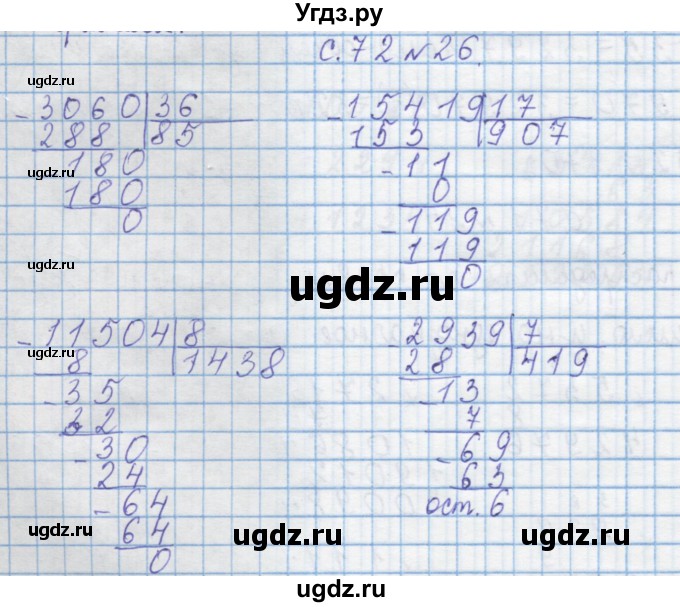 Угдз.ру
с. 72 № 26.
ugdz.ru
- 3060 | 36
288 | 85
180
180
0
ugdz.ru
ugdz.ru
- 15419 | 17
153 | 907
- 11
0
- 119
119
0
ugdz.ru
- 11504 | 8
8 | 1438
- 35
32
- 30
24
- 64
64
0
ugdz.ru
ugdz.ru
- 2939 | 7
28 | 419
- 13
7
- 69
63
ост. 6
ugdz.ru
ugdz.ru
ugdz.ru
ugdz.ru